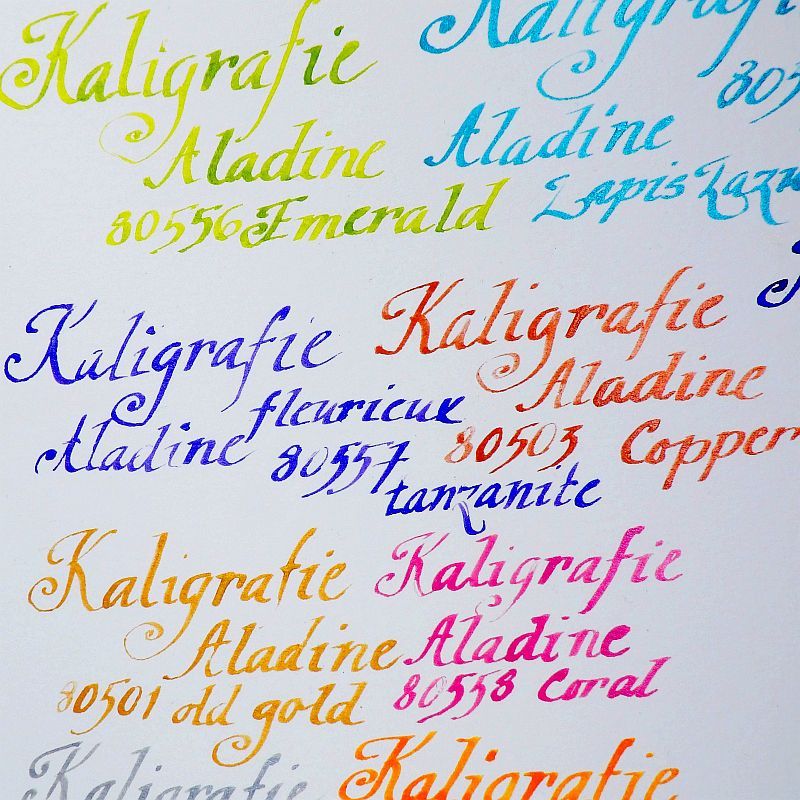 Kaligrafie
Aladine
80556 Emerald
Kaligrafie
Aladine
Lapis Lazu
Kaligrafie
fleurieux
Aladine 80557
tanzanite
Kaligrafie
Aladine
80503 Copper
Kaligrafie
Aladine
80501 old gold
Kaligrafie
Aladine
80558 Coral
Kaligrafie
Kaligrafie